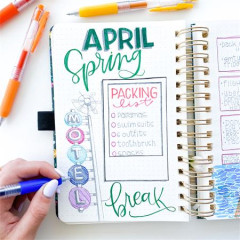 APRIL
Spring
PACKING
list
pajamas
5 outfits
toothbrush
snacks
MOTEL
break